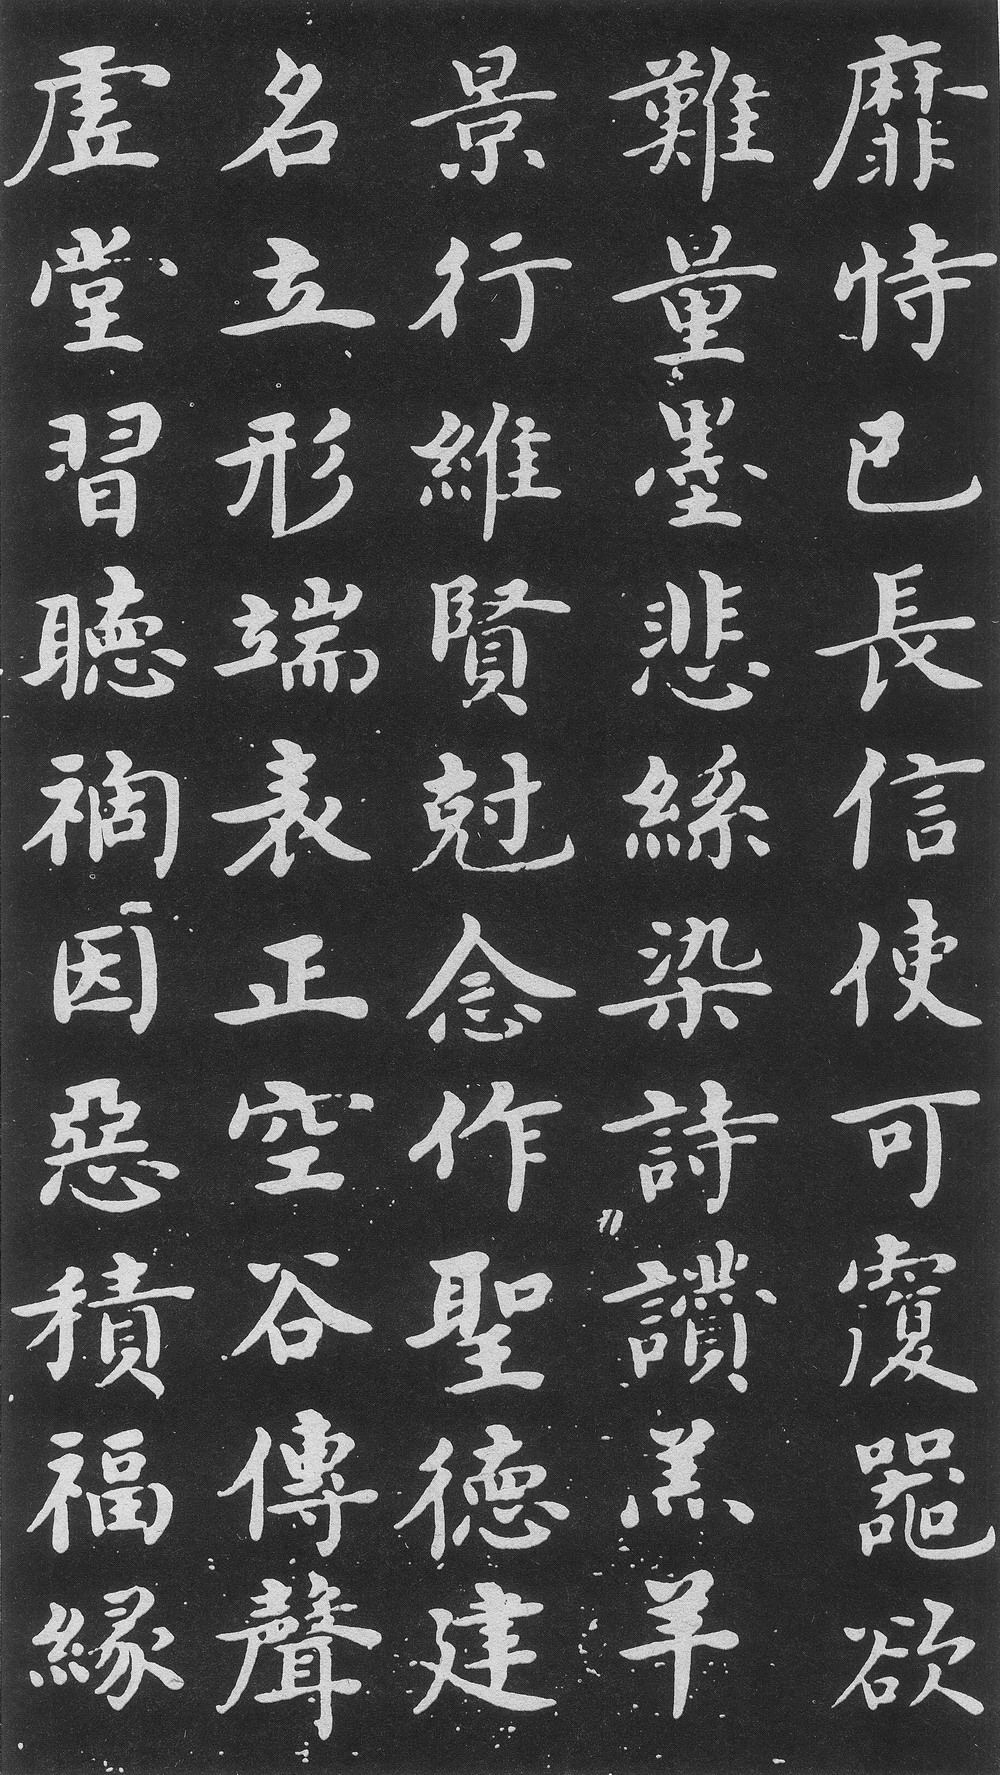 靡恃已長信使可覆器欲
難量墨悲絲染詩讚羔羊
景行維賢尅念作聖德建
名立形端表正空谷傳聲
虛堂習聽禍因惡積福緣